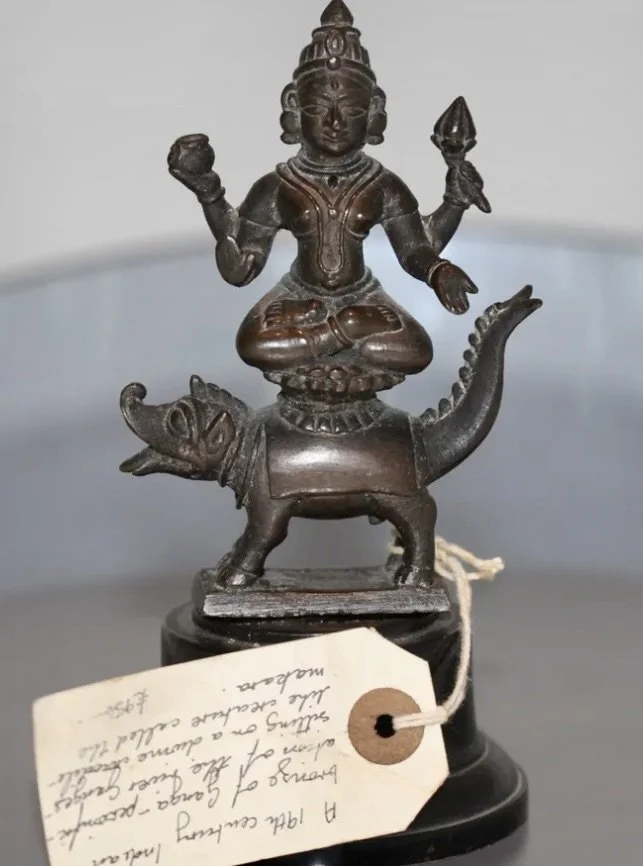 A 19th century Indian
bronze of Ganga - personific-
ation of the river Ganges -
sitting on a divine crocodile-
like creature called the
makara.